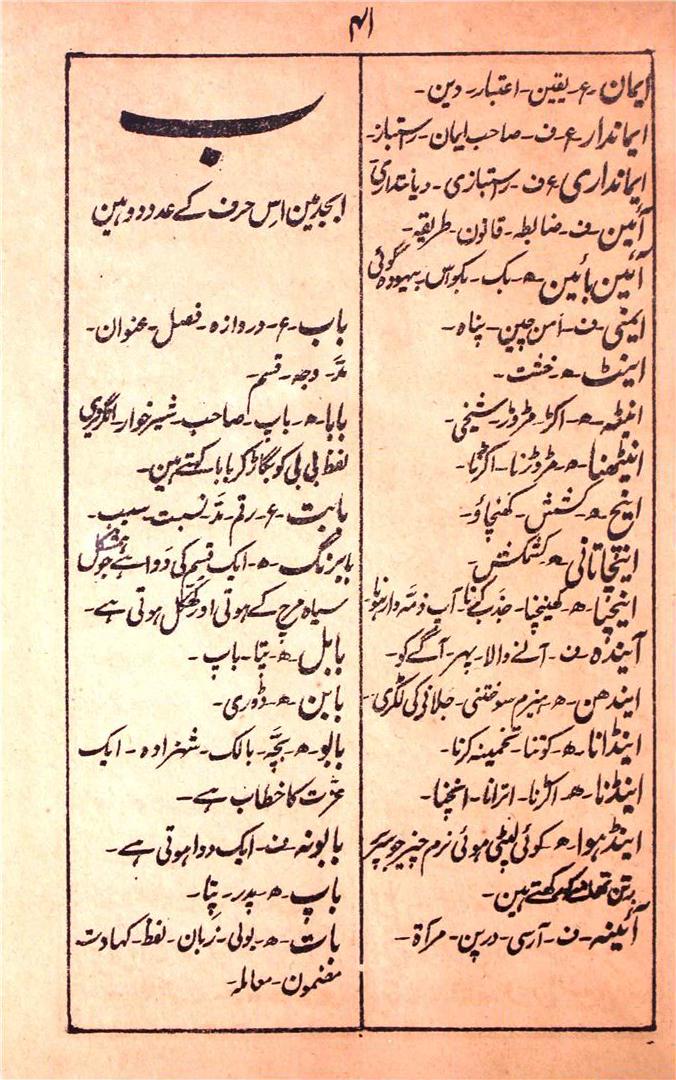 ۴۱
ایمان۔ع۔یقین۔اعتبار۔دین۔
ایماندار۔ع ف۔صاحب ایمان۔راستباز۔
ایمانداری ع ف۔راستبازی۔دیانتداری۔
آئین۔ف۔ضابطہ۔قانون۔طریقہ۔
آئین بائین۔ھ۔بک۔بکواس بیہودہ گوئی
ایمنی۔ف۔امن چین۔پناہ۔
اینٹ۔ھ۔خشت۔
اینٹھ۔ھ۔اکڑ۔مروڑ۔شیخی۔
اینٹھنا۔ھ۔مروڑنا۔اکڑنا۔
اینچ۔ھ۔کشش۔کھنچاؤ۔
اینچا تانی۔ھ۔کشمکش۔
اینچنا۔ھ۔کھینچنا۔جذب کرنا۔آپ ذمہ دار ہونا۔
آیندہ۔ف۔آنے والا۔پہر۔آگے کو۔
ایندھن۔ھ۔ہیزم سوختنی۔جلانی کی لکڑی۔
اینڈانا۔ھ۔کوتنا۔تخمینہ کرنا۔
اینڈنا۔ھ۔اکڑنا۔اترانا۔اینچنا۔
اینڈہوا۔ھ۔کوئی لپٹی ہوئی نرم چیز جو سر پر
برتن رکھتے ہین۔
آئینہ۔ف۔آرسی۔درپن۔مرآۃ۔
ب
ابجد مین اس حرف کے عدد دو ہین
باب۔ع۔دروازہ۔فصل۔عنوان۔
مدّ۔وجہ۔قسم۔
بابا۔ھ۔باپ۔صاحب۔شیرخوار۔انگریزی
لفظ بی بی کو بگاڑ کر بابا۔کہتے ہین۔
بابت۔ع۔رقم۔مدّ۔نسبت۔سبب۔
بابرنگ۔ھ۔ایک قسم کی دوا ہے جو بشکل
سیاہ مرچ کے ہوتی اور ہوتی ہے۔
بابل۔ھ۔پتا۔باپ۔
بابن۔ھ۔ڈوری۔
بابو۔ھ۔بچّہ۔بالک۔شہزادہ۔ایک
عزّت کا خطاب ہے۔
بابونہ۔ف۔ایک دوا ہوتی ہے۔
باپ۔ھ۔پدر۔پتا۔
بات۔ھ۔بولی۔زبان۔لفظ۔کہاوت
مضمون۔معاملہ۔